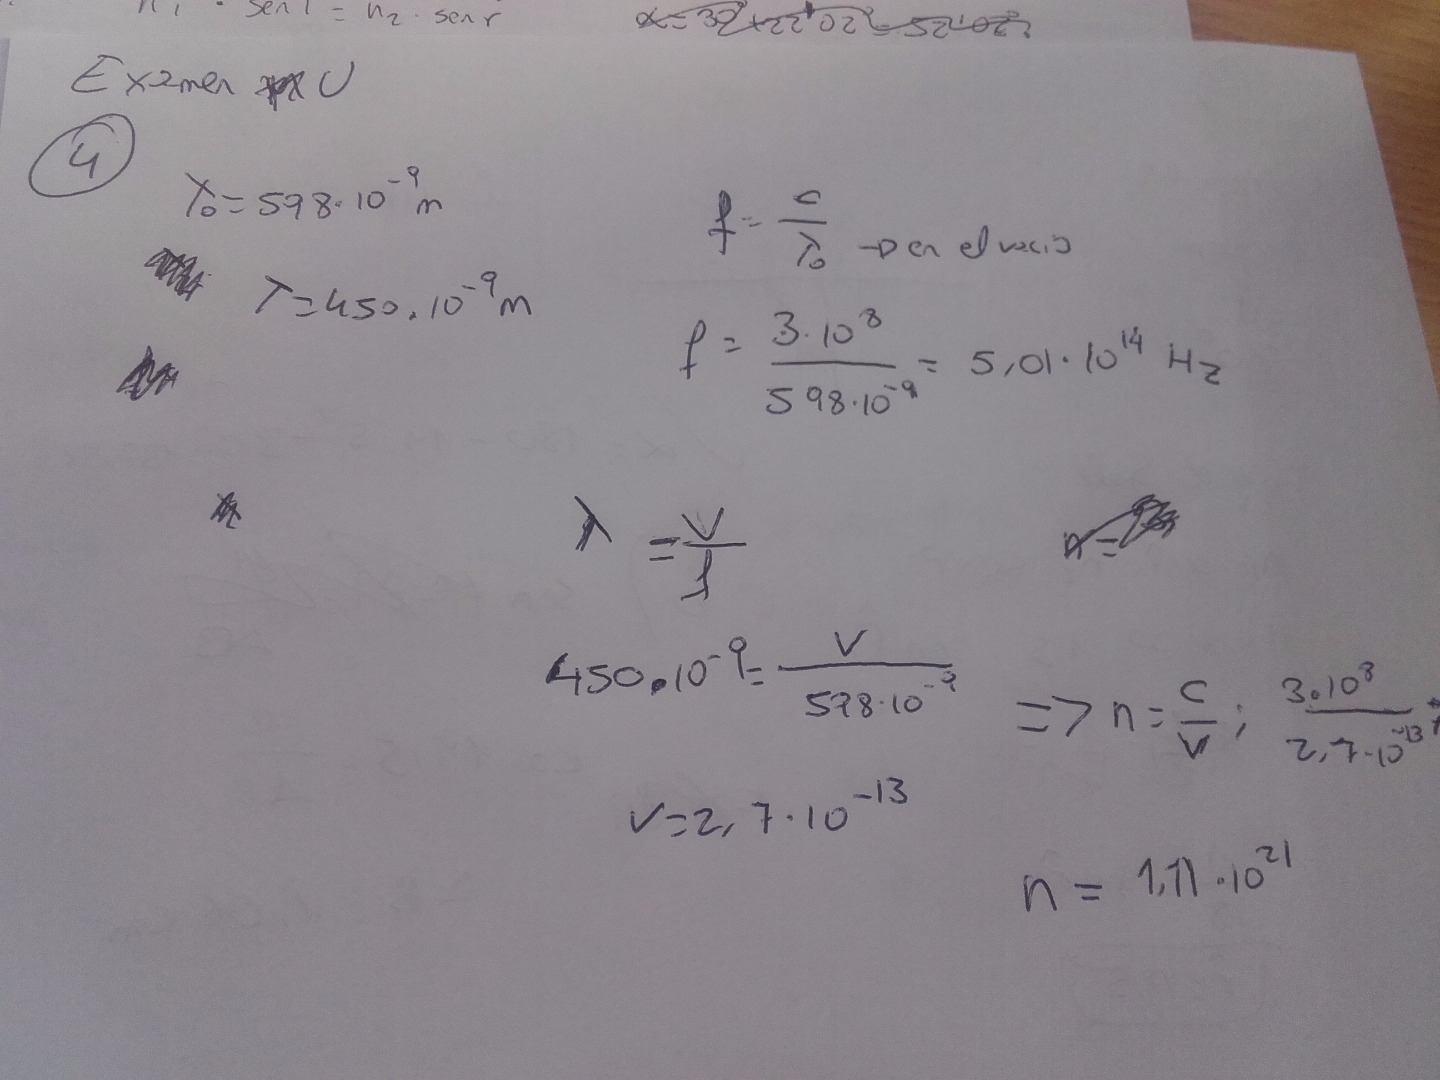 n₁ · sen i = n₂ · sen r
Examen U
4
λ₀ = 598·10⁻⁹ m
λ = 450·10⁻⁹ m
f = c / λ₀ → en el vacío
f = 3·10⁸ / 598·10⁻⁹ = 5,01·10¹⁴ Hz
λ = v / f
450·10⁻⁹ = v / 598·10⁻⁹ => n = c / v ; 3·10⁸ / 2,7·10⁻¹³ ;
v = 2,7·10⁻¹³
n = 1,11·10²¹